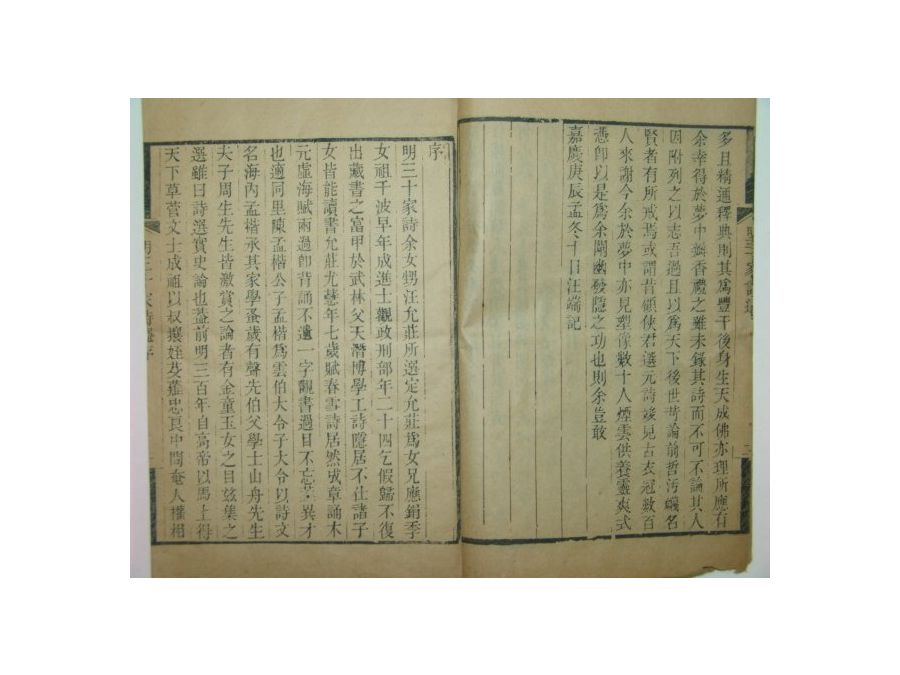 多且精通釋典則其爲豐干後身生天成佛亦理所應有
余幸得於夢中辦香禮之雖未錄其詩而不可不論其人
因附列之以志吾過且以爲天下後世昔論前哲污衊名
賢者有所戒焉或謂昔顧俠君選元詩竣見古衣冠數百
人來謝今余於夢中亦見塑像數十人煙雲供養靈爽式
憑卽以是爲余闡幽發隱之功也則余豈敢
嘉慶庚辰孟冬十日汪端記
序
明三十家詩余女甥汪允莊所選定允莊爲女兄應鋗季
女祖千波早年成進士觀政刑部年二十四乞假歸不復
出藏書之富甲於武林父天潛博學工詩隱居不仕諸子
女皆能讀書允莊尤慧年七歲賦春雪詩居然成章誦木
元虛海賦兩過卽背誦不遺一字觀書過目不忘蓋異才
也適同里陳孟楷公子孟楷爲雲伯大令子大令以詩文
名海內孟楷承其家學蚤歲有聲先伯父學士山舟先生
夫子周生先生皆激賞之論者有金童玉女之目玆集之
選雖曰詩選實史論也蓋前明三百年自高帝以馬上得
天下草菅文士成祖以叔攘姪芟薙忠良中間奄人權相